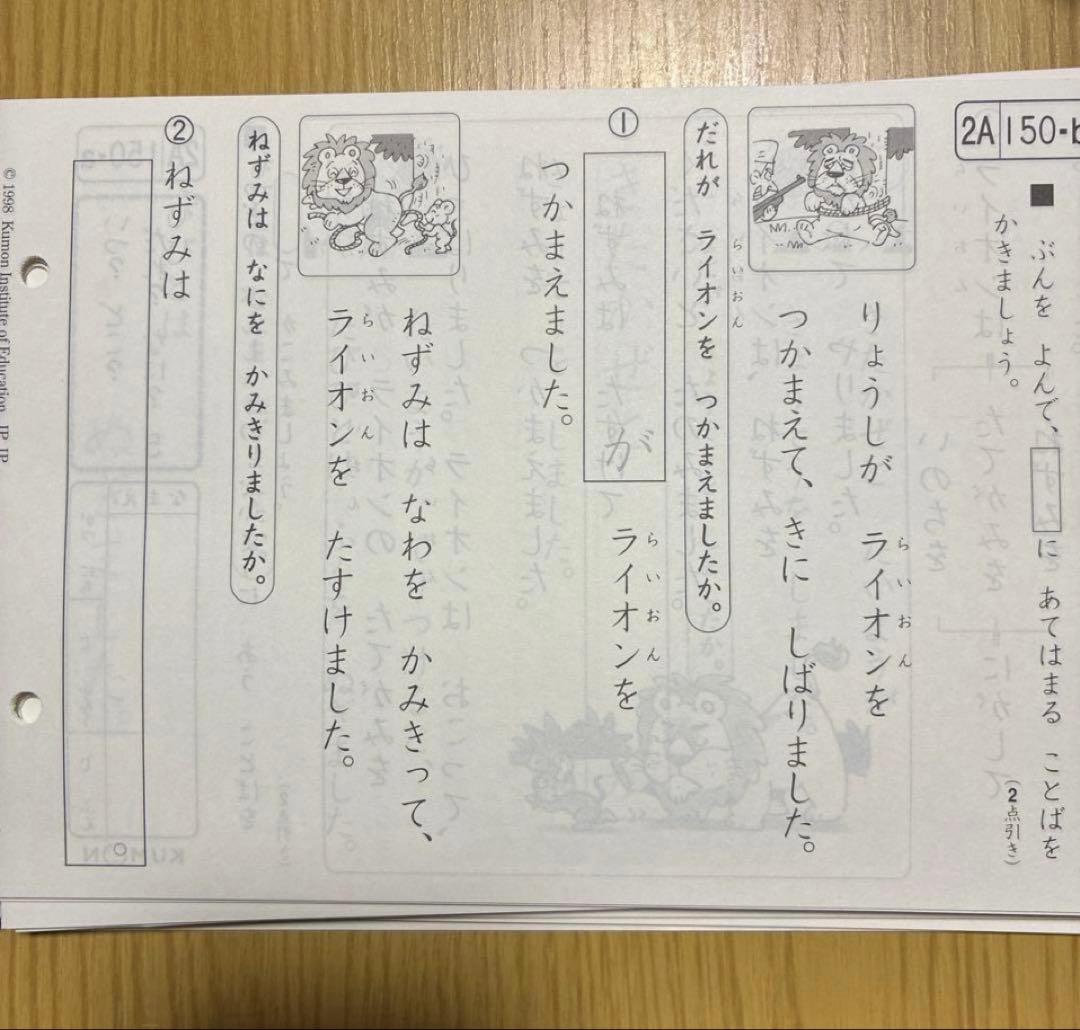 2A 150-b
■ ぶんを よんで、ねずみに あてはまる ことばを
かきましょう。
(2点引き)
りょうしが ライオンを
らいおん
つかまえて、きに しばりました。
だれが ライオンを つかまえましたか。
らいおん
①
が ライオンを
らいおん
つかまえました。
ねずみは なわを かみきって、
ライオンを たすけました。
らいおん
ねずみは なにを かみきりましたか。
② ねずみは
。
© 1998 Kumon Institute of Education JP JP